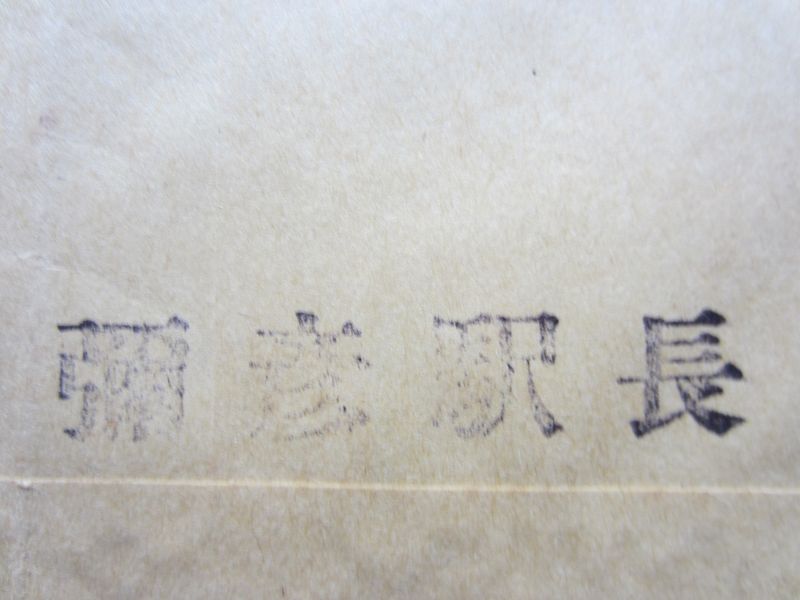 彌彦駅長